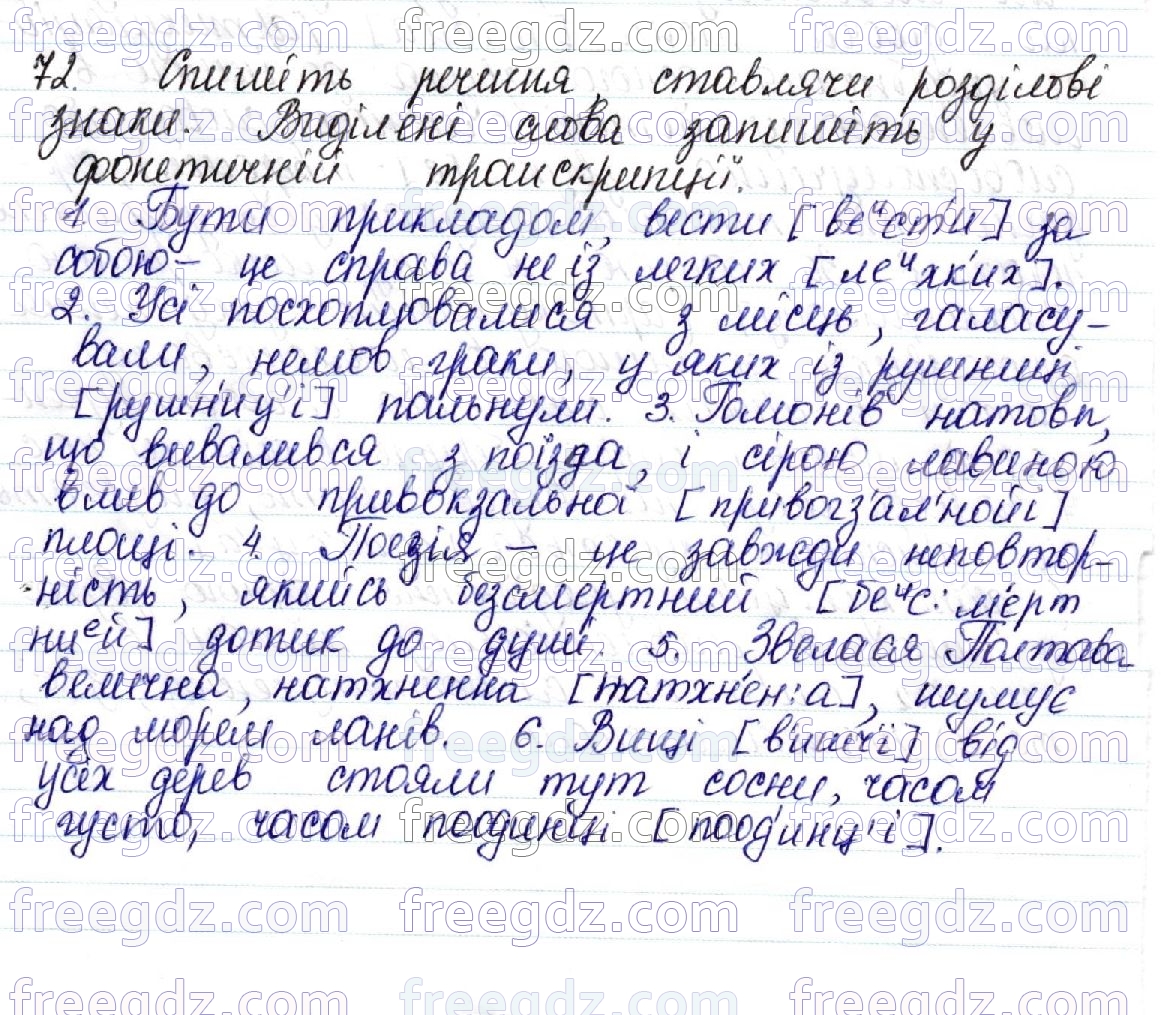 72. Спишіть речення, ставлячи розділові
знаки. Виділені слова запишіть у
фонетичній транскрипції.
1. Бути прикладом, вести [веᶦстѝ] за
собою – це справа не із легких [леᶦхкѝх].
2. Усі посхоплювалися з місць, галасу-
вали, немов граки, у яких із рушниці
[рушнѝц'і] пальнули. 3. Гомонів натовп,
що вивалився з поїзда, і сірою лавиною
влив до привокзальної [привогза́л'нойі]
площі. 4. Поезія – це завжди неповтор-
ність, якийсь безсмертний [беᶦс:ме́рт
ниᵉй] дотик до душі. 5. Звелася Полтава
велична, натхненна [натхне́н:а], шумує
над морем ланів. 6. Вищі [вѝшчі] від
усіх дерев стояли тут сосни, часом
густо, часом поодинці [пооди́нц'і].
freegdz.com